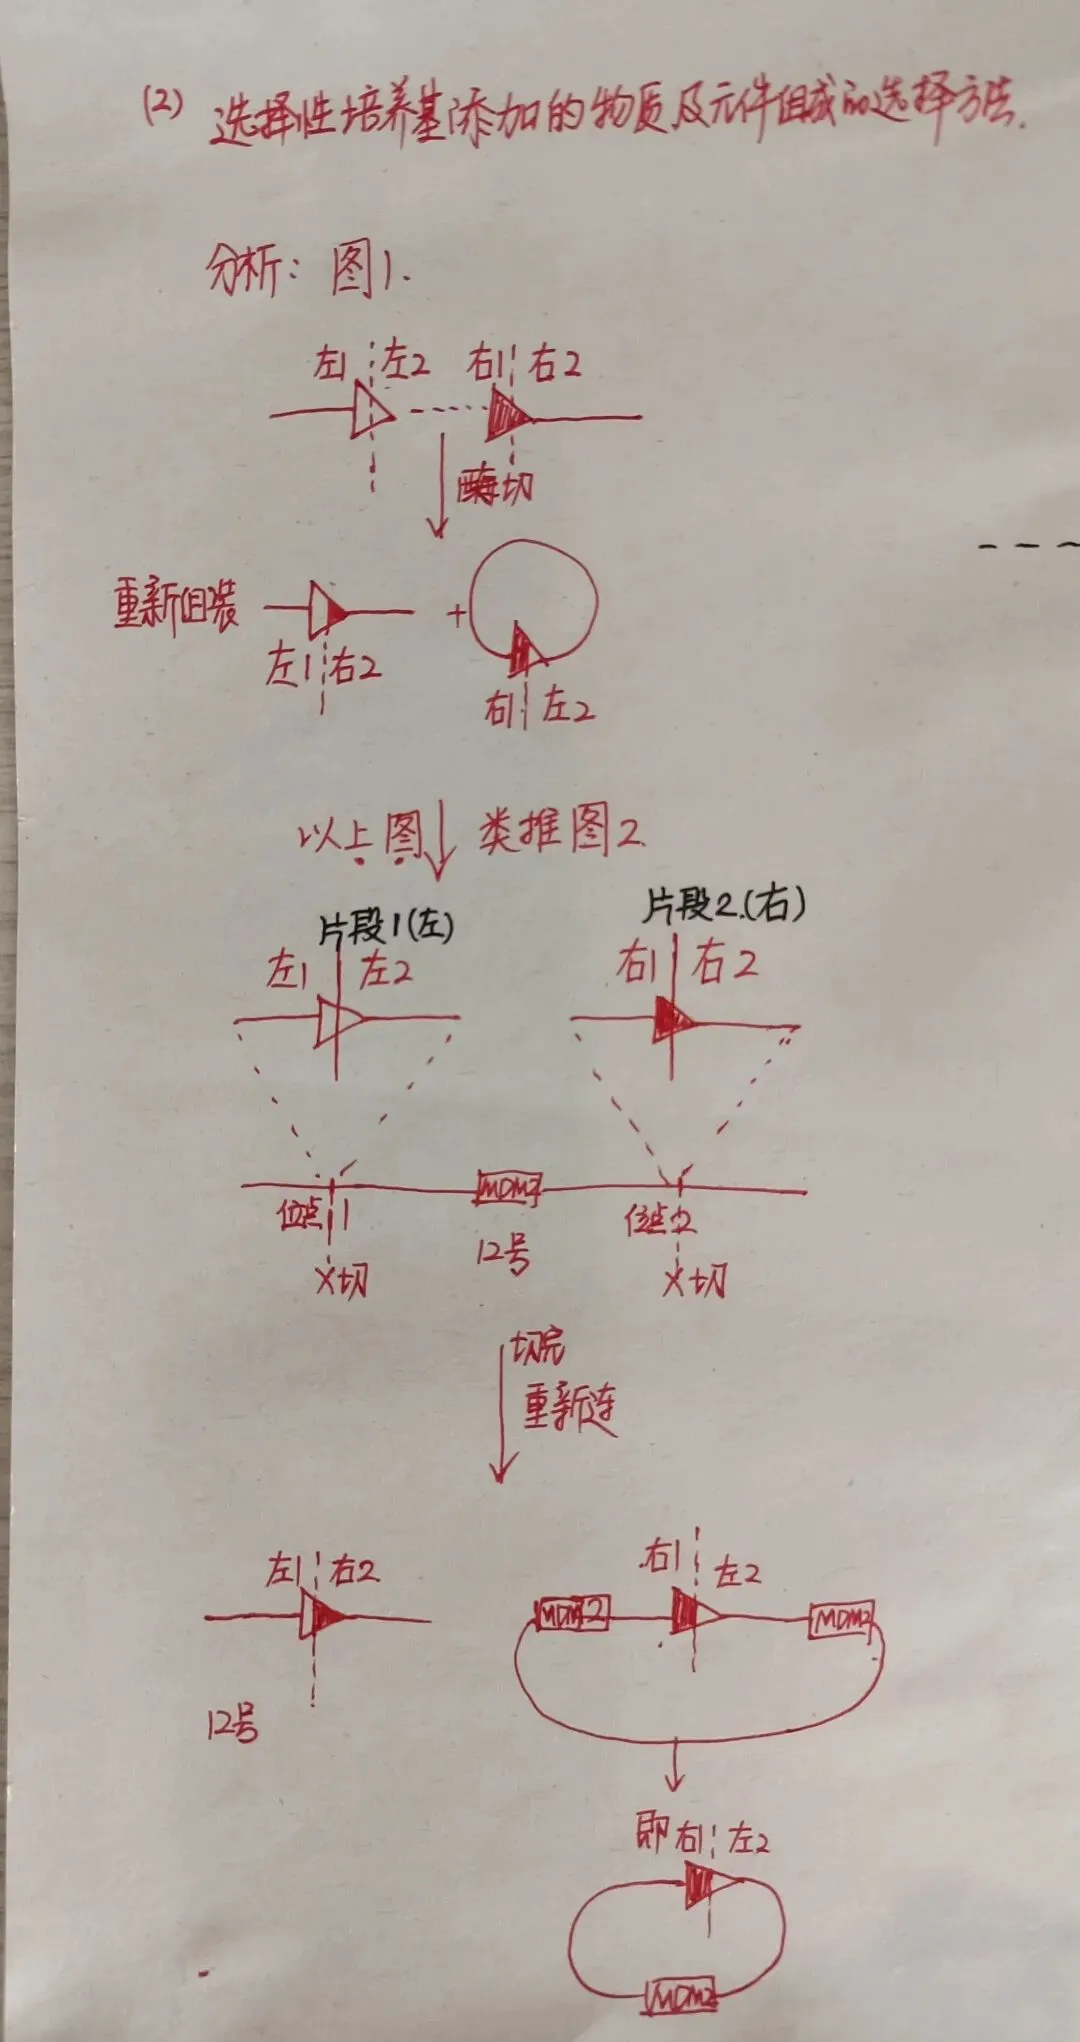 (2) 选择性培养基添加的物质及元件组成的选择方法.
分析: 图1.
左1 左2 右1 右2
酶切
重新组装 +
左1 右2
右1 左2
以上图 类推图2.
片段1(左) 片段2.(右)
左1 左2 右1 右2
MDM2
位点1 12号 位点2
X切 X切
切完
重新连
左1 右2 右1 左2
MDM2 MDM2
12号
即右1 左2
MDM2